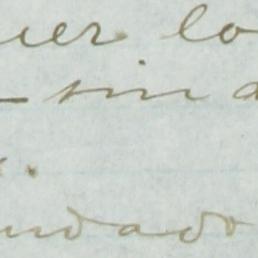 uer lo
- sin a
.
undado